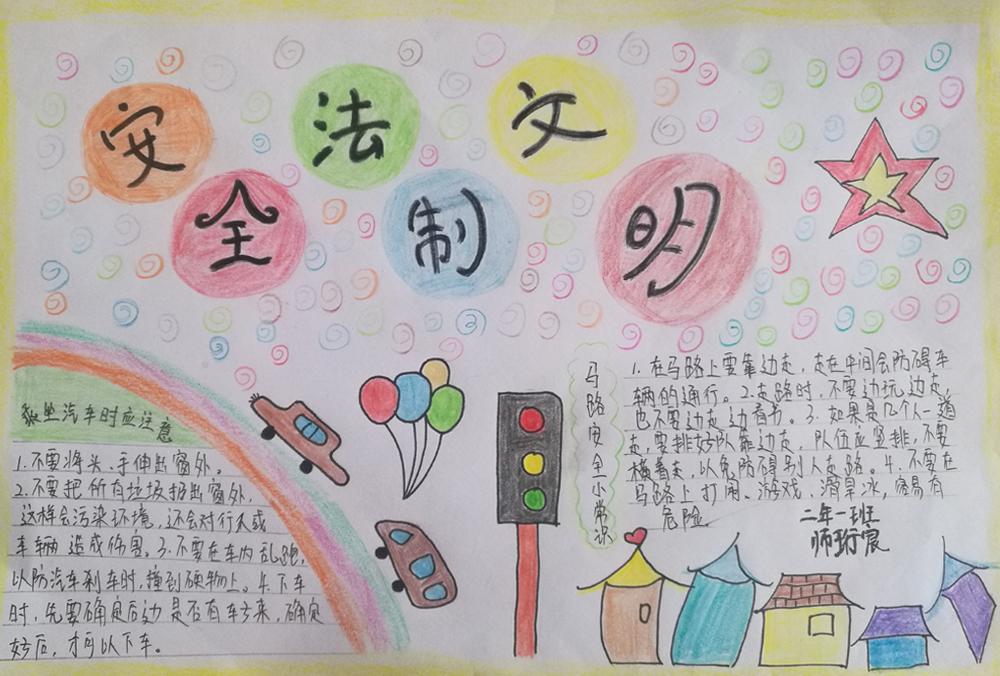 安 法 文
全 制 明
乘坐汽车时应注意
1.不要将头、手伸出窗外。
2.不要把所有垃圾扔出窗外,
这样会污染环境,还会对行人或
车辆造成伤害。3.不要在车内乱跑,
以防汽车刹车时,撞到硬物上。4.下车
时,先要确定后边是否有车子来,确定
好后,才可以下车。
马路安全小常识
1.在马路上要靠边走,走在中间会防碍车
辆的通行。2.走路时,不要边玩边走,
也不要边走边看书。3.如果是几个人一道
走,要排好队靠边走,队伍应竖排,不要
横着走,以免防碍别人走路。4.不要在
马路上打闹、游戏、滑旱冰,容易有
危险。
二年一班
师珩宸